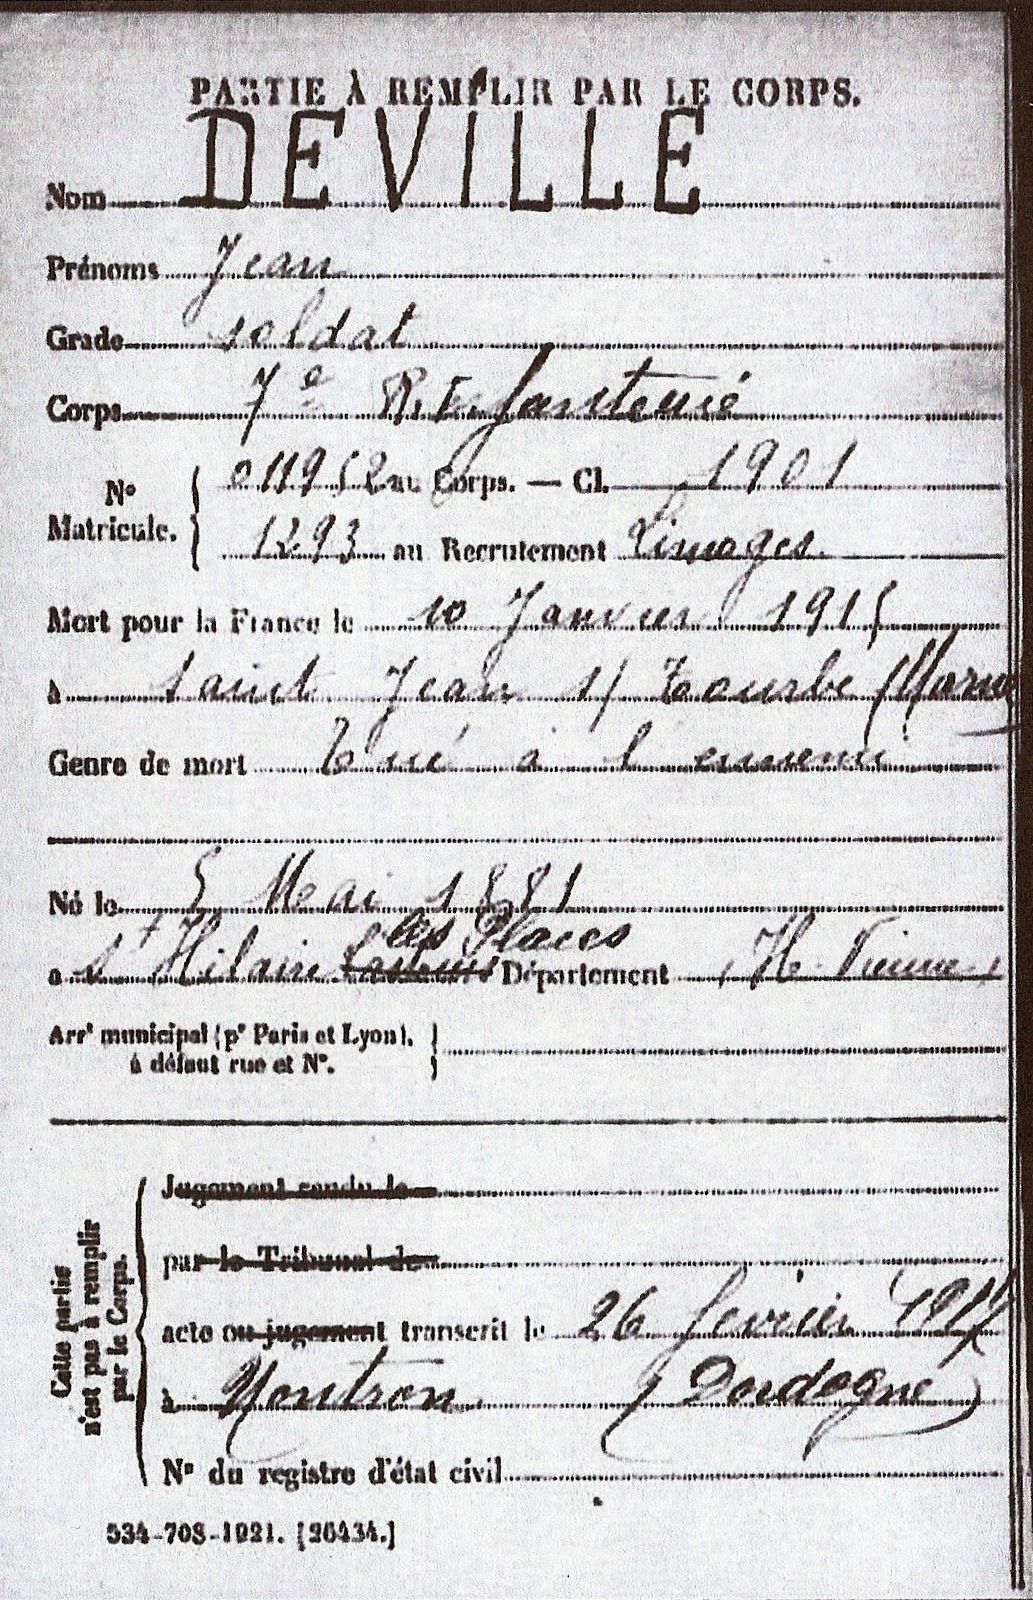 PARTIE À REMPLIR PAR LE CORPS.
Nom DEVILLE
Prénoms Jean
Grade soldat
Corps 7e R. Infanterie
No Matricule. { 011952 au Corps. — Cl. 1901
1293 au Recrutement Limoges
Mort pour la France le 10 Janvier 1915
à Saint Jean s/ Tourbe (Marne
Genre de mort Tué à l ennemi
Né le 5 Mai 1881
les Places
à St Hilaire Lastours Département (H. Vienne)
Arrt municipal (pr Paris et Lyon), à défaut rue et No. }
Cette partie n'est pas à remplir par le Corps. {
Jugement rendu le
par le Tribunal de
acte ou jugement transcrit le 26 fevrier 1917
à Nontron (Dordogne)
No du registre d'état civil
534-708-1921. [26434.]